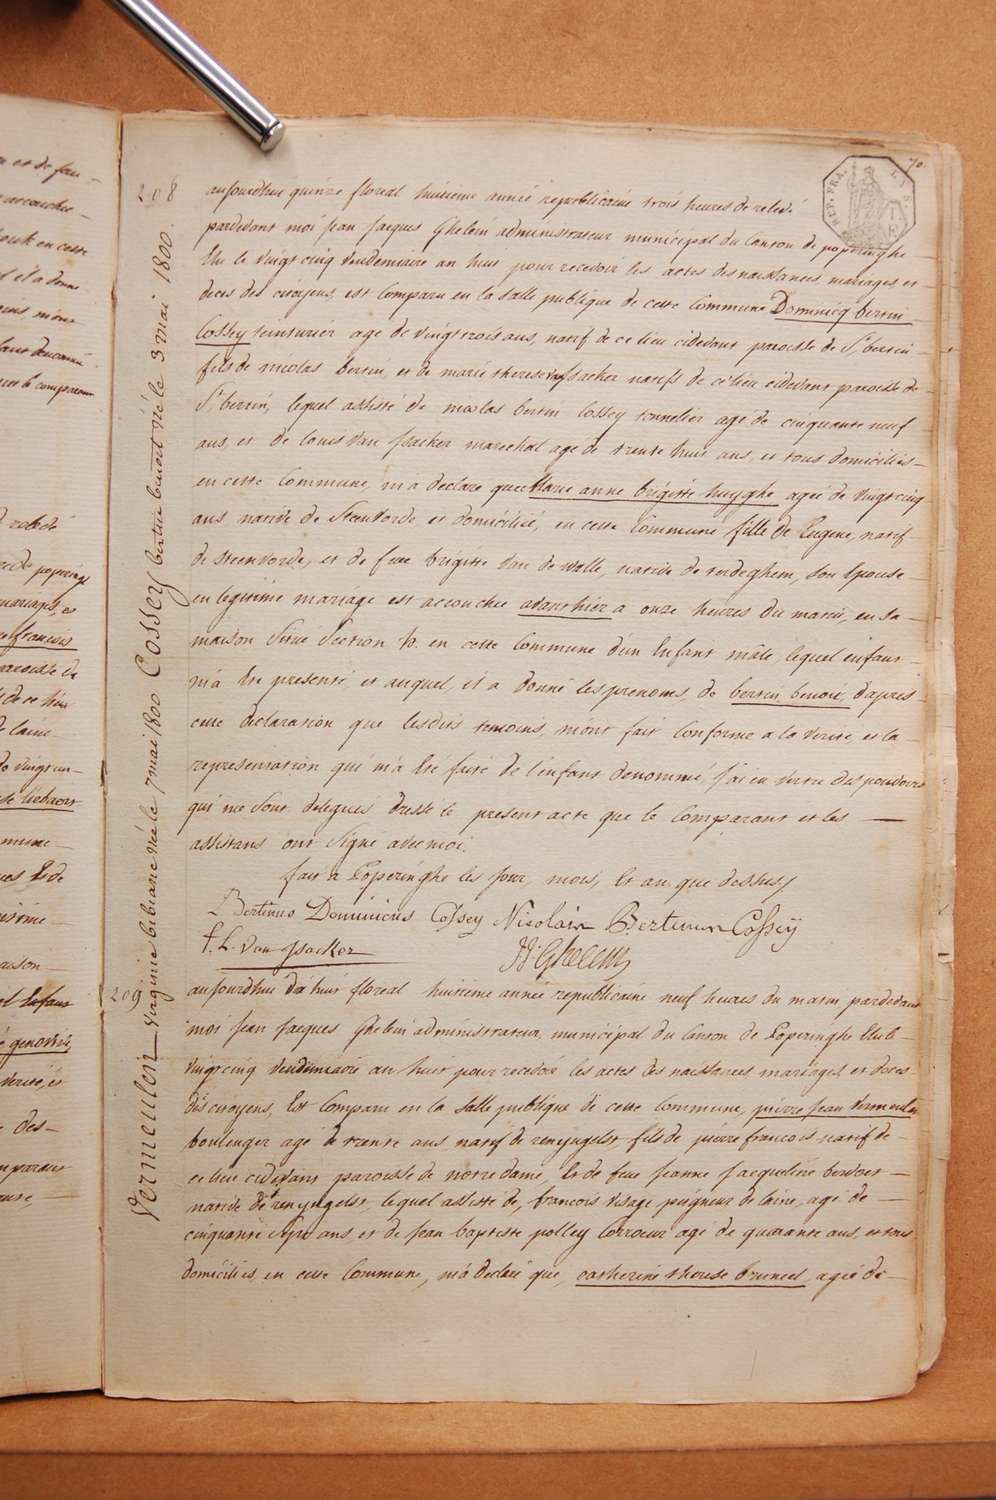 70.
REP. FRA.
208
Cossey bertin benoit né le 3 mai 1800.
aujourdhui quinze floreal huitieme année republicaine trois heures de relevé
pardevant moi Jean Jacques Ghelein administrateur municipal du Canton de poperinghe
Elu le vingt cinq vendemiaire an huit pour recevoir les actes des naissances mariages et
deces des citoyens, est Comparu en la salle publique de cette Commune Dominicq bertin
Cossey teinturier age de vingt trois ans, natif de ce lieu cidevant paroisse de St bertin
fils de nicolas bertin, et de marie therese van Isacker natifs de ce lieu cidevant paroisse de
St bertin, lequel assisté de nicolas bertin Cossey tonnelier agé de cinquante neuf
ans, et de Louis van Isacker marechal age de trente huit ans, et tous domiciliés
en cette Commune, m'a declare que Marie anne brigitte huyghe ageé de vingt cinq
ans native de Steenvorde et domiciliée, en cette Commune fille de Eugene, natif
de steenvorde, et de feue brigitte van de walle, native de terdeghem, son Epouse
en legitime mariage est accouchee avanthier a onze heures du matin, en sa
maison Situe Section b. en cette Commune d'un Enfant mâle, lequel enfant
m'a Ete presenté et auquel, il a donné les prenoms, de bertin, benoit, d'apres
cette declaration que lesdits temoins, m'ont fait Conforme a la verité, et la
representation qui m'a Ete faite de l'enfant denommé, j'ai en vertu des pouvoirs
qui me sont delegués dressé le present acte que le Comparant et les
assistans ont Signé avec moi.
fait a Poperinghe les Jour, mois, Et an que dessus /
Bertinus Dominicus Cossey Nicolain Bertinus Cossey
f. L. van Isacker
JJ Ghelein
209
Vermeulen virginie bibiane née le 7 mai 1800
aujourdhui dix huit floreal huitieme année republicaine neuf heures du matin pardevant
moi Jean Jacques Ghelein administrateur, municipal du Canton de Poperinghe Elu le
vingt cinq vendemiaire an huit pour recevoir les actes des naissances mariages et deces
des citoyens, Est Comparu en la salle publique de cette Commune, pierre Jean vermeulen
boulenger agé de trente ans natif de renyngelst fils de pierre francois natif de
ce lieu cidevant paroisse de notre dame, Et de feue Jeanne Jacqueline
native de renyngelst, lequel assisté de, francois visage peigneur de laine, agé de
cinquante Sept ans et de Jean baptiste polley Corroieur agé de quarante ans, et tous
domiciliés en cette Commune, m'a declaré que, catherine therese bruneel ageé de